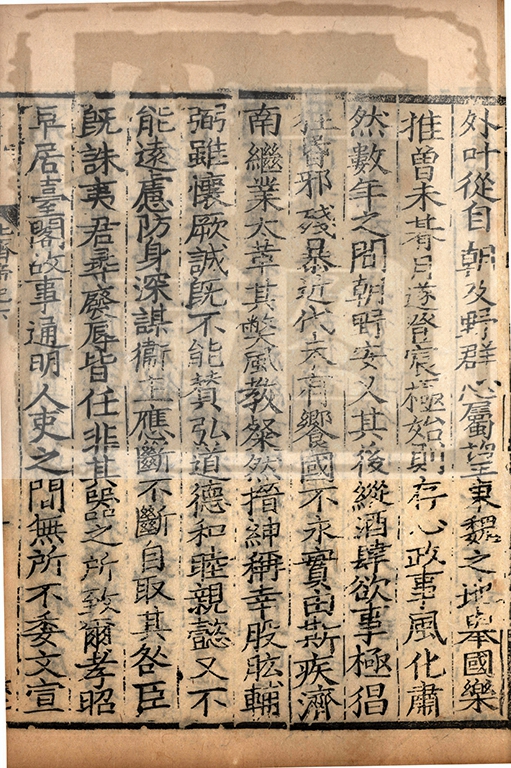 外叶從自朝及野群心屬望東魏之地舉國樂
推曾未朞月遂登宸極始則存心政事風化肅
然數年之間朝野安乂其後縱酒肆欲事極猖
狂昏邪殘暴近代未有饗國不永實由斯疾濟
南繼業大革其弊風教粲然搢紳稱幸股肱輔
弼雖懷厥誠旣不能贊弘道德和睦親懿又不
能遠慮防身深謀衞主應斷不斷自取其咎臣
旣誅夷君尋廢辱皆任非其器之所致爾孝昭
早居臺閣故事通明人吏之間無所不委文宣